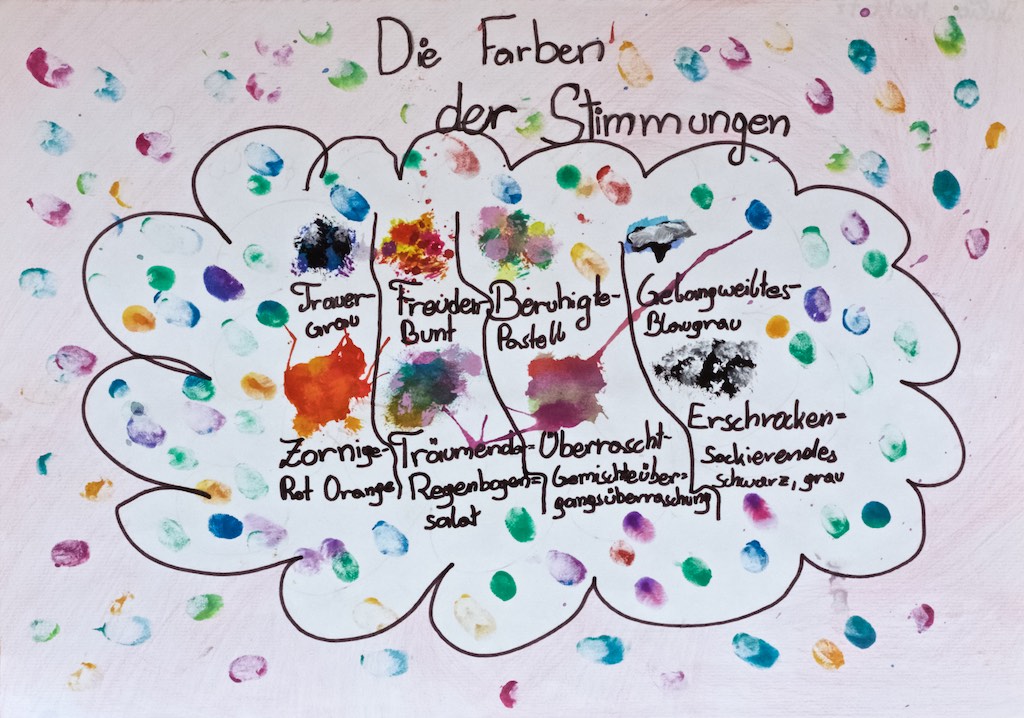 Die Farben
der Stimmungen
Trauer-
Grau
Freuden
Bunt
Beruhigte-
Pastell
Gelangweiltes-
Blaugrau
Zornige-
Rot Orange
Träumende-
Regenbogen=
salat
Überrascht-
Gemischteüber-
gangsüberraschung
Erschrocken=
sockierendes
schwarz, grau